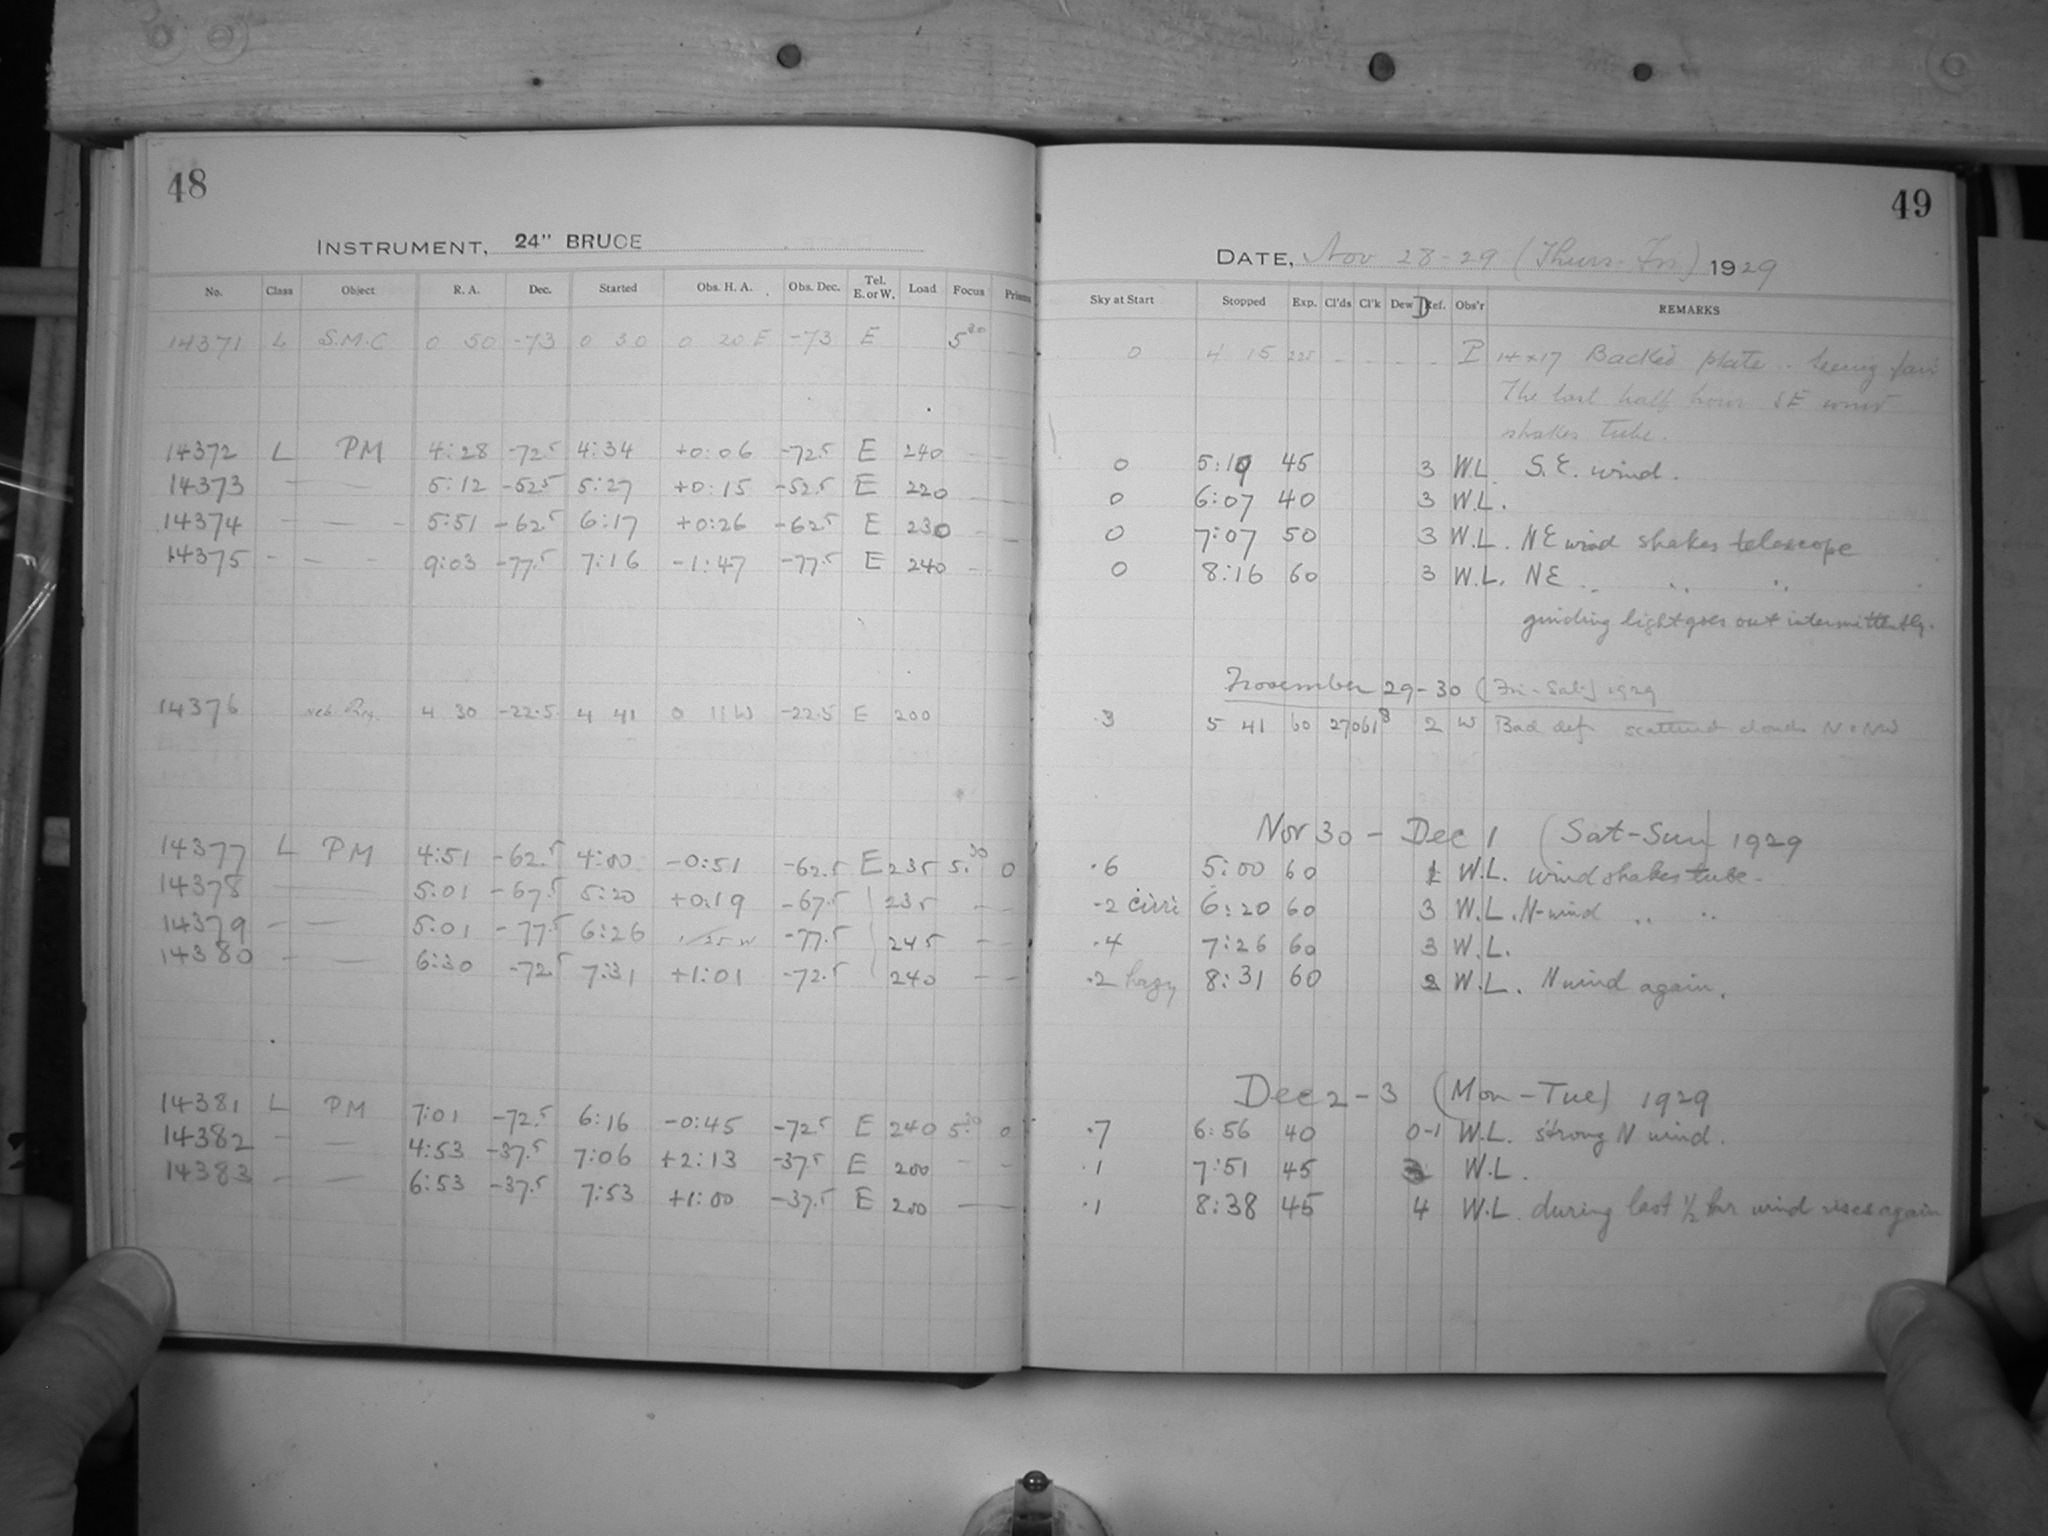 48
INSTRUMENT, 24" BRUCE
No. Class Object R. A. Dec. Started Obs. H. A. Obs. Dec. Tel. E. or W. Load Focus Prisms
14371 L S.M.C 0 50 -73 0 30 0 20 E -73 E 5 30 —
14372 L PM 4:28 -72.5 4:34 +0:06 -72.5 E 240 — —
14373 — — 5:12 -52.5 5:27 +0:15 -52.5 E 220 — —
14374 — — - 5:51 -62.5 6:17 +0:26 -62.5 E 230 — —
14375 — — — 9:03 -77.5 7:16 -1:47 -77.5 E 240 —
14376 4 30 -22.5 4 41 0 11 W -22.5 E 200
14377 L PM 4:51 -62.5 4:00 -0:51 -62.5 E 235 5.30 0
14378 — 5:01 -67.5 5:20 +0:19 -67.5 235 — —
14379 — — 5:01 -77.5 6:26 1 25 W -77.5 245 — —
14380 — — 6:30 -72.5 7:31 +1:01 -72.5 240 — —
14381 L PM 7:01 -72.5 6:16 -0:45 -72.5 E 240 5.30 0
14382 — — 4:53 -37.5 7:06 +2:13 -37.5 E 200 — —
14383 — — 6:53 -37.5 7:53 +1:00 -37.5 E 200 — —
49
DATE, Nov 28-29 (Thurs-Fri) 1929
Sky at Start Stopped Exp. Cl'ds Cl'k Dew D Ref. Obs'r REMARKS
0 4 15 225 - - - - P 14x17 Backed plate.. Seeing fair
The last half hour SE wind
shakes tube.
0 5:19 45 3 W.L. S.E. wind.
0 6:07 40 3 W.L.
0 7:07 50 3 W.L. NE wind shakes telescope
0 8:16 60 3 W.L. NE .. .. ..
guiding light goes out intermittently.
November 29-30 (Fri-Sat) 1929
.3 5 41 60 27061 8 2 W Bad def. scattered clouds N + NW
Nov 30 - Dec 1 (Sat-Sun) 1929
.6 5:00 60 1 W.L. wind shakes tube.
.2 cirri 6:20 60 3 W.L. N-wind .. ..
.4 7:26 60 3 W.L.
.2 hazy 8:31 60 2 W.L. N wind again.
Dec 2-3 (Mon-Tue) 1929
.7 6:56 40 0-1 W.L. strong N wind.
.1 7:51 45 3 W.L.
.1 8:38 45 4 W.L. during last ½ hr wind rises again